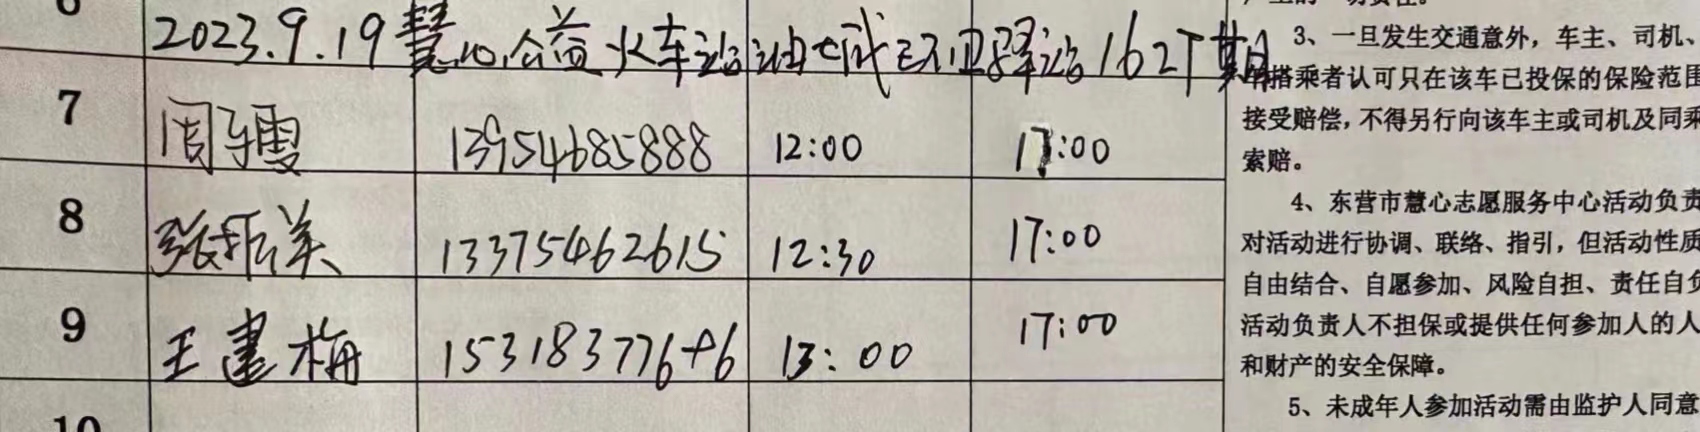 6
2023.9.19慧心公益火车站油城
162
3、一旦发生交通意外，车主、司机、
7 周 13954685888 12:00 17:00
搭乘者认可只在该车已投保的保险范围
接受赔偿，不得另行向该车主或司机及同乘
索赔。
8 张振美 13375462615 12:30 17:00
4、东营市慧心志愿服务中心活动负责
对活动进行协调、联络、指引，但活动性质
自由结合、自愿参加、风险自担、责任自负
9 王建梅 13:00 17:00
活动负责人不担保或提供任何参加人的人
和财产的安全保障。
10
5、未成年人参加活动需由监护人同意